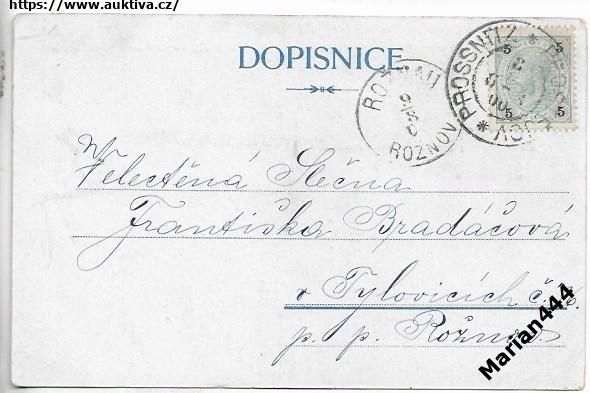 https://www.auktiva.cz/
DOPISNICE
ROŽNAU
ROŽNOV
PROSSNITZ
5 5
5 5
Velectěná Slečna
Františka Bradáčová
v Tylovicích č.
p. p. Rožnov
Marian444